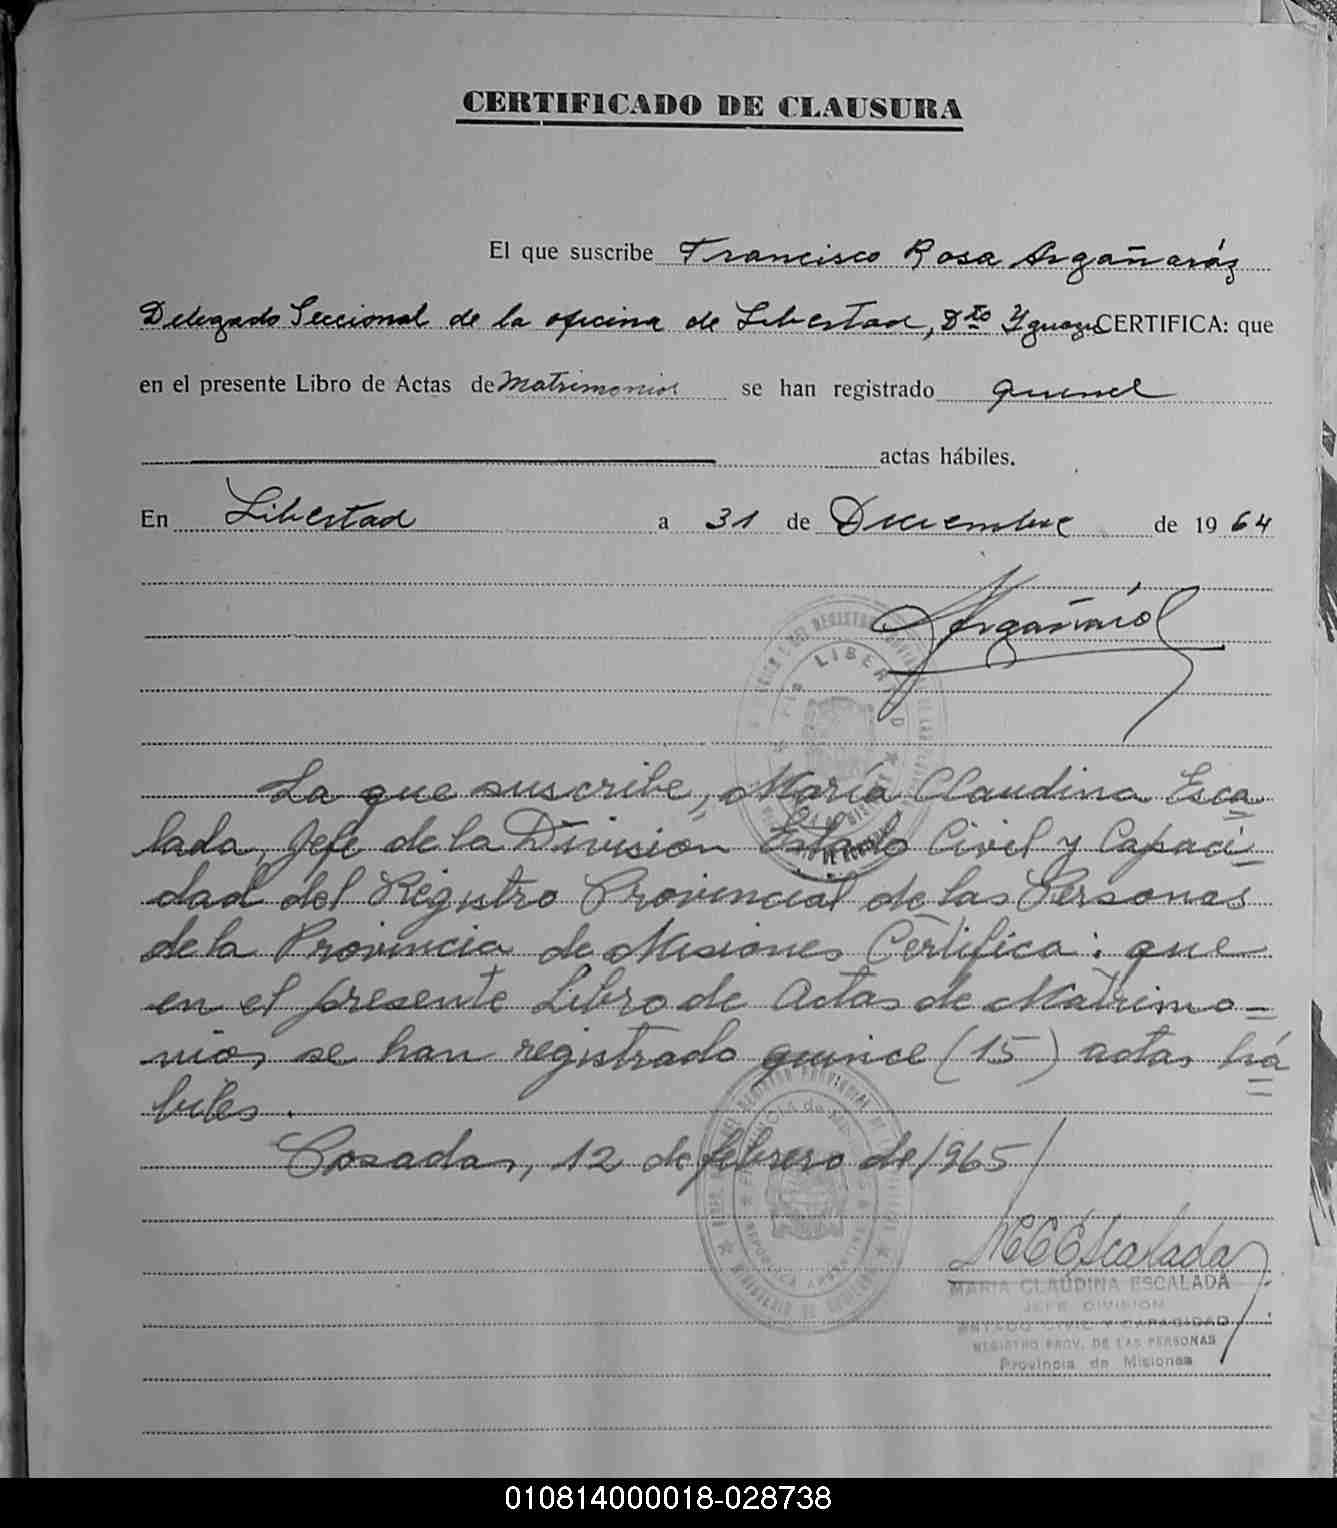 CERTIFICADO DE CLAUSURA
El que suscribe Francisco Rosa Argañaráz
Delegado Seccional de la oficina de Libertad, Dto Yguazu CERTIFICA: que
en el presente Libro de Actas de Matrimonios se han registrado quince
actas hábiles.
En Libertad a 31 de Diciembre de 1964
Argañaráz
LIBERTAD
La que suscribe, María Claudina Esca
lada, Jefe de la División Estado Civil y Capaci
dad del Registro Provincial de las Personas
de la Provincia de Misiones Certifica: que
en el presente Libro de Actas de Matrimo=
nios se han registrado quince (15) actas há
biles.
Posadas, 12 de febrero de 1965
MCEscalada
MARIA CLAUDINA ESCALADA
JEFE DIVISION
ESTADO CIVIL Y CAPACIDAD
REGISTRO PROV. DE LAS PERSONAS
Provincia de Misiones
010814000018-028738